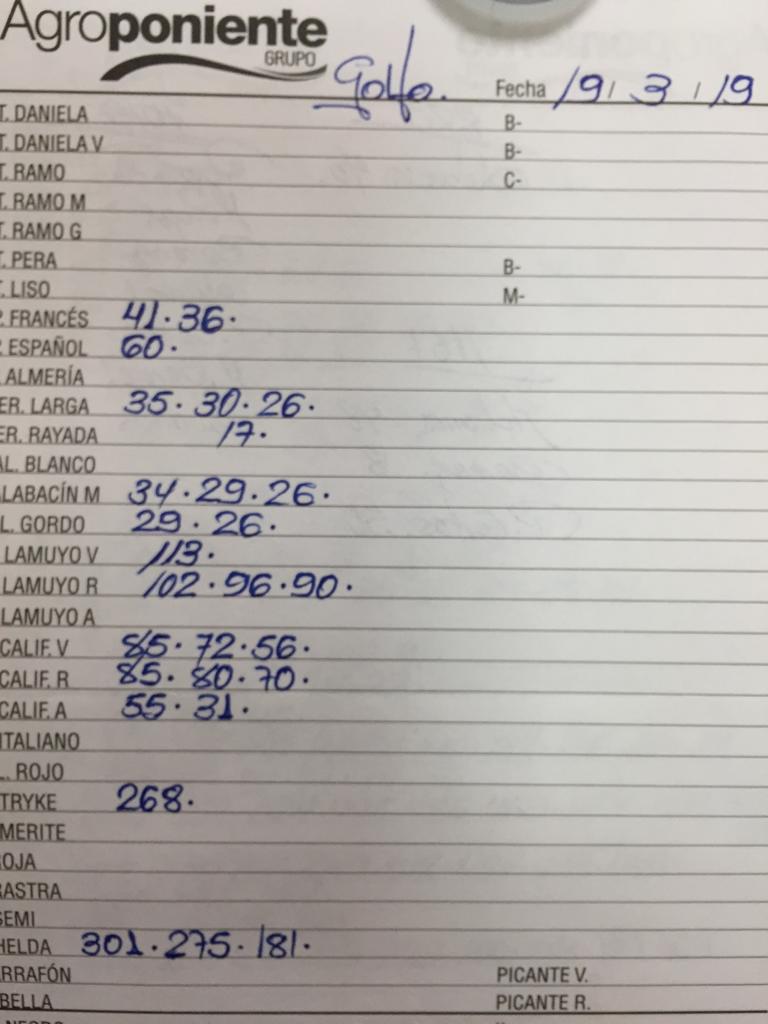 Agroponiente
GRUPO
Golfo. Fecha 19 / 3 / 19
T. DANIELA B-
T. DANIELA V B-
T. RAMO C-
T. RAMO M
T. RAMO G
T. PERA B-
T. LISO M-
P. FRANCÉS 41. 36.
P. ESPAÑOL 60.
ALMERÍA
ER. LARGA 35. 30. 26.
ER. RAYADA 17.
AL. BLANCO
LABACÍN M 34. 29. 26.
L. GORDO 29. 26.
LAMUYO V 113.
LAMUYO R 102. 96. 90.
LAMUYO A
CALIF. V 85. 72. 56.
CALIF. R 85. 80. 70.
CALIF. A 55. 31.
ITALIANO
L. ROJO
TRYKE 268.
MERITE
OJA
RASTRA
SEMI
HELDA 301. 275. 181.
RRAFÓN PICANTE V.
BELLA PICANTE R.